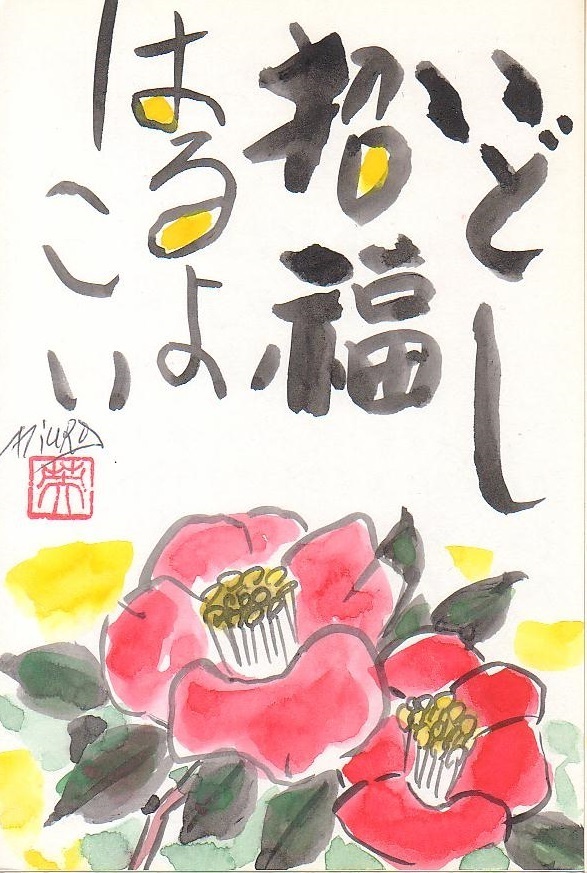 いどし
招福
はるよ
こい
Miura
栄